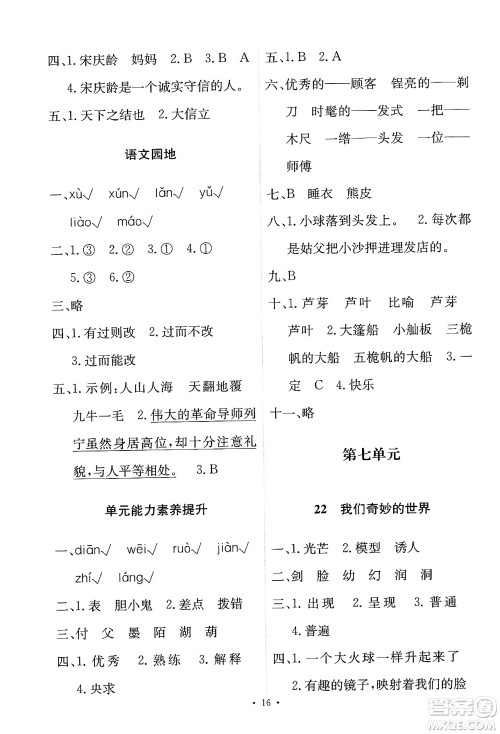 四、1. 宋庆龄　妈妈　2. B　3. B　A
4. 宋庆龄是一个诚实守信的人。
五、1. 天下之结也　2. 大信立
语文园地
一、xù√　xún√　lǎn√　yǔ√
liào√　máo√
二、1. ③　2. ②　3. ①　4. ①
5. ③　6. ②
三、略
四、1. 有过则改　2. 过而不改
3. 过而能改
五、1. 示例：人山人海　天翻地覆
九牛一毛　2. 伟大的革命导师列
宁虽然身居高位，却十分注意礼
貌，与人平等相处。　3. B
单元能力素养提升
一、diān√　zhēn√　ruò√　jiàn√
zhí√　láng√
二、1. 表　胆小鬼　2. 差点　拨错
三、付　父　墨　陌　湖　葫
四、1. 优秀　2. 熟练　3. 解释
4. 央求
五、1. B　2. A
六、优秀的——顾客　锃亮的——剃
刀　时髦的——发式　一把——
木尺　一绺——头发　一位——
师傅
七、B　睡衣　熊皮
八、1. 小球落到头发上。　2. 每次都
是姑父把小沙押进理发店的。
九、B
十、1. 芦芽　芦叶　比喻　芦芽
芦叶　2. 大篷船　小舢板　三桅
帆的大船　五桅帆的大船　3. 固
定　C　4. 快乐
十一、略
第七单元
22　我们奇妙的世界
一、1. 光芒　2. 模型　诱人
二、剑　脸　幼　幻　润　洞
三、1. 出现　2. 呈现　3. 普通
4. 普遍
四、1. 一个大火球一样升起来了
2. 有趣的镜子，成了我们的脸
· 16 ·
答案圈